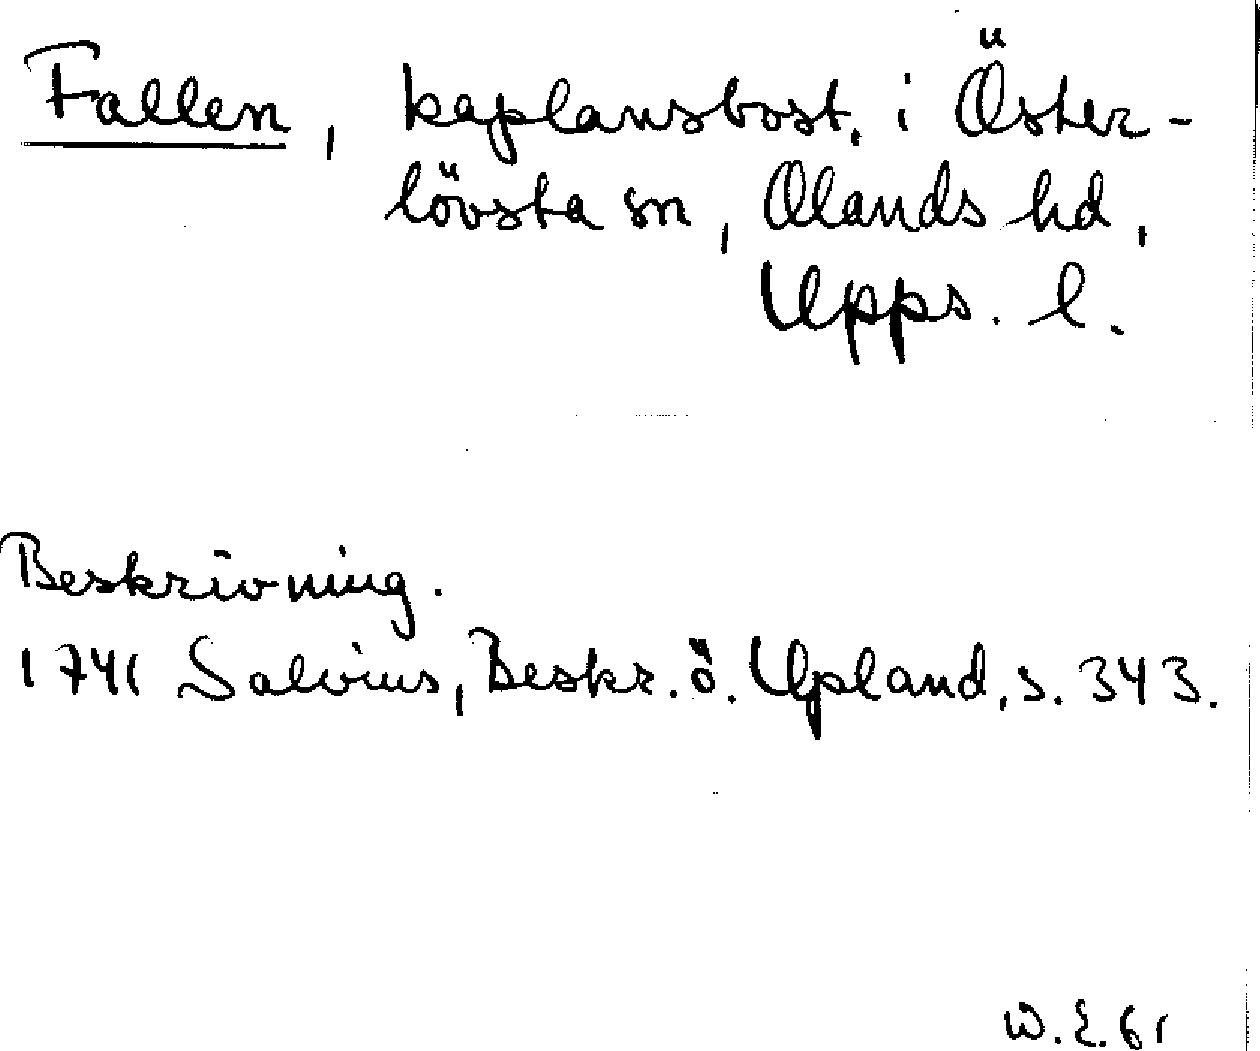 Fallen, kaplansbost. i Öster-
lövsta sn, Olands hd,
Upps. l.
Beskrivning.
1741 Salvius, Beskr. ö. Upland, s. 343.
W.E. 61